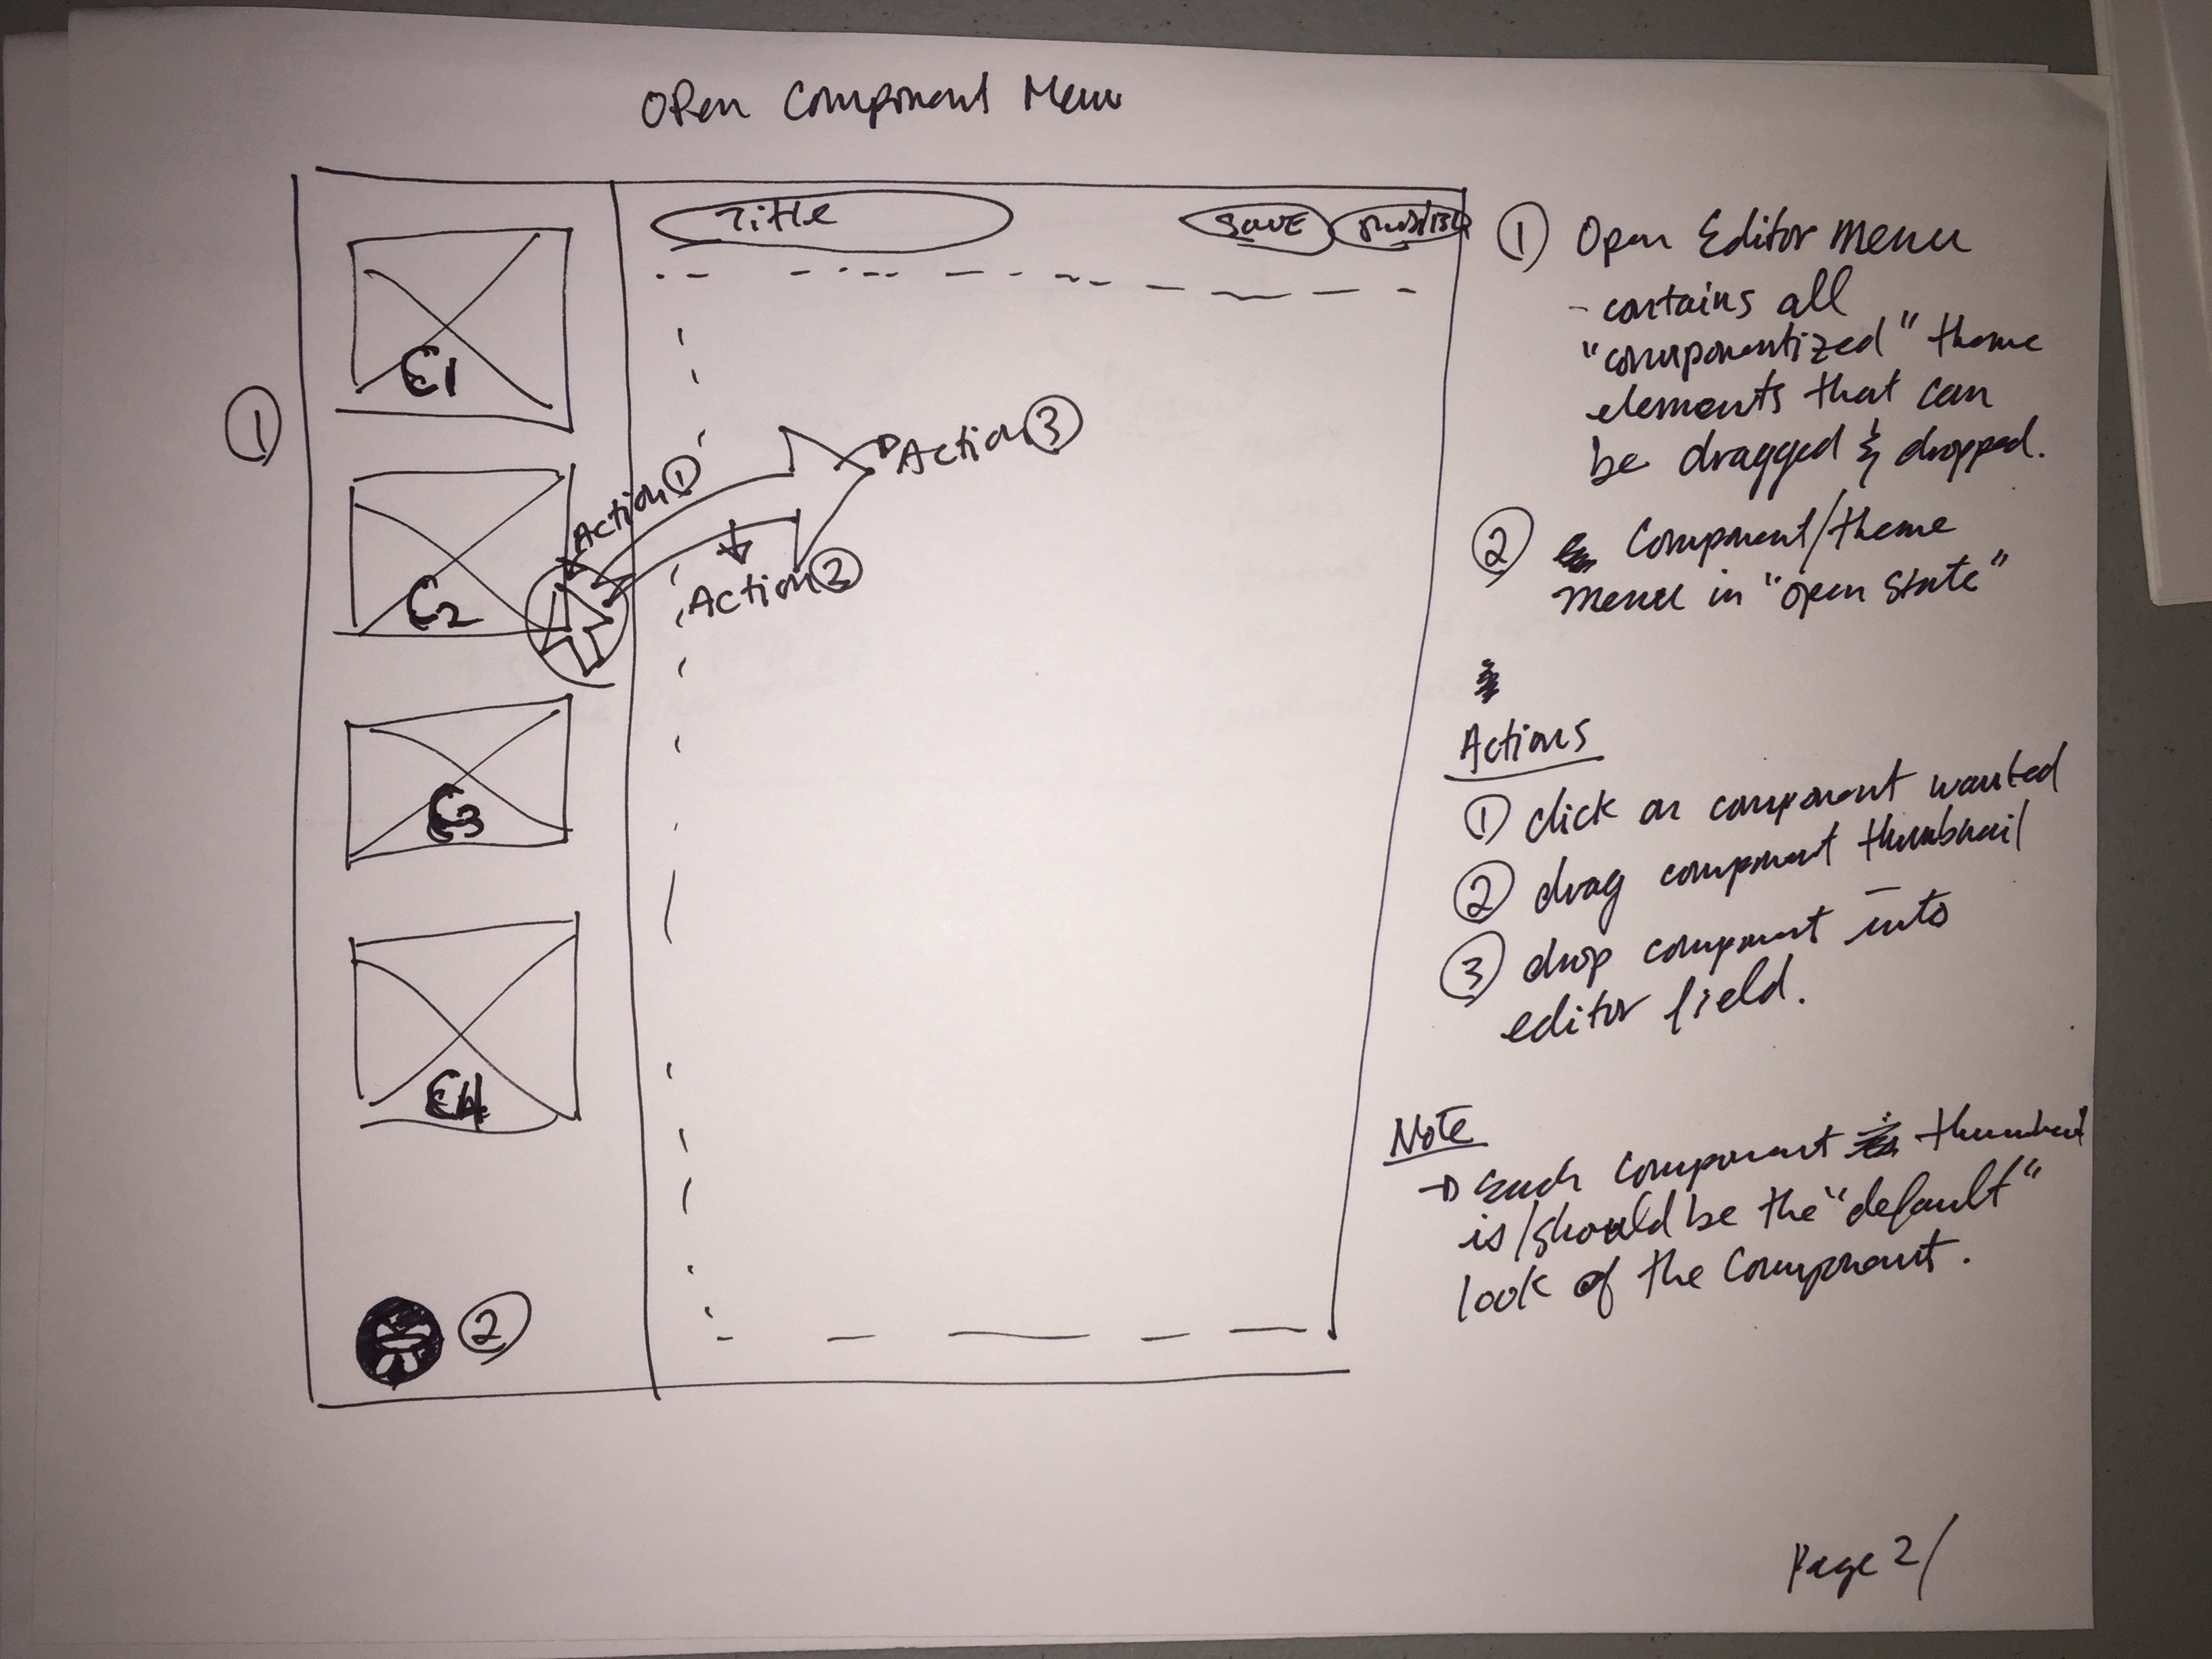 Open Component Menu
Title
SAVE
Publish
C1
1
Action 3
Action 1
Action 2
C2
C3
C4
2
1 Open Editor menu
- contains all
"componentized" theme
elements that can
be dragged & dropped.
2 Component/theme
menu in "open state"
Actions
1 click on component wanted
2 drag component thumbnail
3 drop component into
editor field.
Note
→ Each component
is/should be the "default"
look of the component.
Page 2/